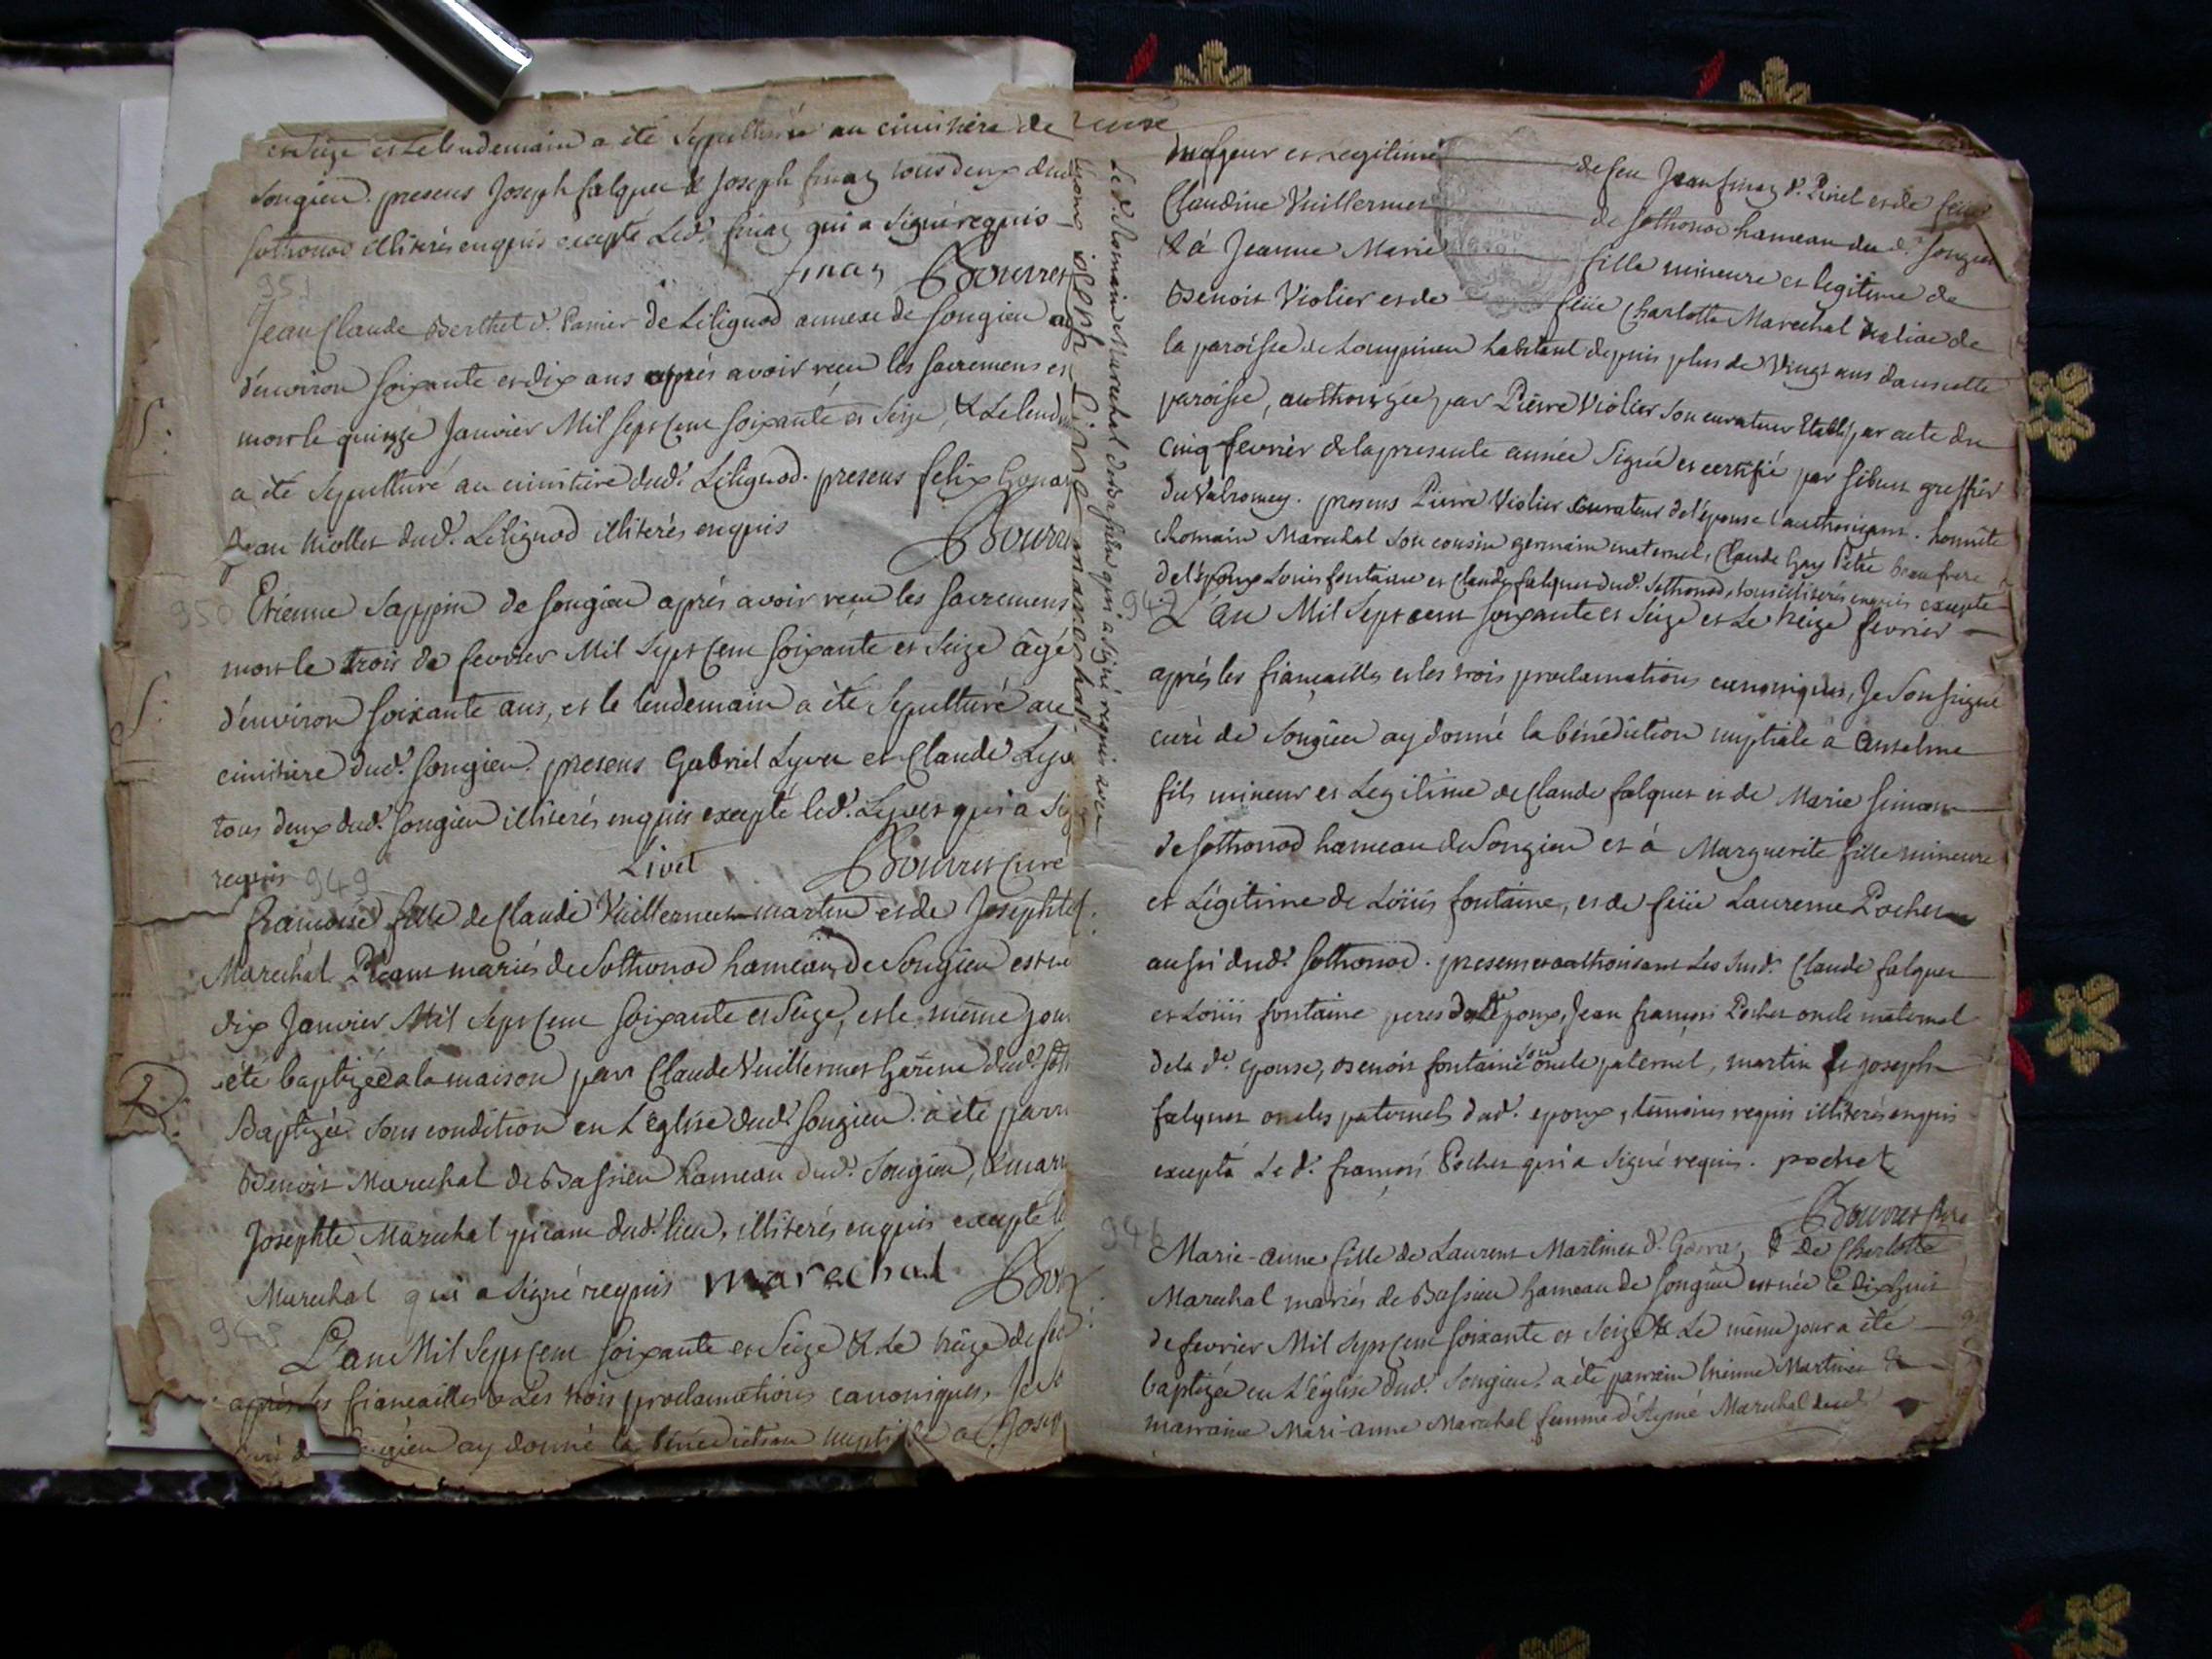 et Seize et le lendemain a été Sepulturée au cimitière de
Songieu. presens Joseph falquet & Joseph finaz tous deux dud
Sothonod illiterés enquis excepté led. finaz qui a signé requis
finaz Bourret
951
Jean Claude Berthet d. Panier de Lilignod annexe de Songieu ag
d'environ soixante et dix ans après avoir reçu les sacremens es
mort le quinze Janvier Mil Sept Cent soixante et Seize, & le lend
a été Sepulturé au cimitière dud. Lilignod. presens felix
Jean Mollet dud. Lilignod illiterés enquis
Bourr
950 Etienne Sappin de Songieu après avoir reçu les sacremens
mort le trois de fevrier Mil Sept Cent soixante et Seize âgé
d'environ soixante ans, et le lendemain a été Sepulturé au
cimitière dud. Songieu. presens Gabriel Lyvet et Claude Lyve
tous deux dud. Songieu illiterés enquis excepté led. Lyvet qui a Sig
requis 949 Livet Bourret Curé
francoise fille de Claude Vuillermet martin et de Josephte
Marechal Picant mariés de Sothonod hameau de Songieu est né
dix Janvier Mil Sept Cent soixante et Seize, et le même jour
été baptizée a la maison par Claude Vuillermet dud. Soth
Baptizée sous condition en L'église dud. Songieu. a été parr
Benoit Marechal de Bassieu hameau dud. Songieu, & marr
Josephte Marechal picant dud. lieu, illiterés enquis excepté le
Marechal qui a signé requis marechal Bou
948
L'an Mil Sept Cent soixante et Seize & le treize de fev
après les fiancailles & Les trois proclamations canoniques, Je S
curé de Songieu ay donné la bénédiction nuptiale a Josep
Le d. Romain Marechal dud. Bassieu qui a signé requis avec
joseph finaz marechal
majeur et Legitime de feu Jean finaz d. Pinel et de feüe
Claudine Vuillermet de Sothonod hameau du d. Songieu
& à Jeanne Marie fille mineure et legitime de
Benoit Violier et de feüe Charlotte Marechal native de
la paroisse de Lompnieu habitant depuis plus de vingt ans dans cette
paroisse, authorizée par Pierre Violier son curateur Etabli par acte du
cinq fevrier de la presente année Signé et certifié par Sibuet greffier
du Valromey. presens Pierre Violier curateur de l'épouse l'authorisant. honnête
Romain Marechal son cousin germain maternel, Claude Gay Pétré beau frere
de l'époux Louis fontaine et Claude falquet dud. Sothonod, tous illiterés enquis excepte
947 L'an Mil Sept cent soixante et Seize et Le treize fevrier
après les fiançailles et les trois proclamations canoniques, Je Soussigné
curé de Songieu ay donné la bénédiction nuptiale à Anselme
fils mineur et Legitime de Claude falquet et de Marie Simon
de Sothonod hameau de Songieu et à Marguerite fille mineure
et Légitime de Loüis fontaine, et de feüe Laurence Pochet
aussi dud. Sothonod. presens et authorisant Les Susd. Claude falquet
et Loüis fontaine peres de l'epoux, Jean françois Pochet oncle maternel
de la d. epouse, Benoit fontaine son oncle paternel, martin & joseph
falquet oncles paternels dud. epoux, témoins requis illiterés enquis
excepté Le d. françois Pochet qui a signé requis. pochet
Bourret Curé
946 Marie-anne fille de Laurent Martinet d. & de Charlotte
Marechal mariés de Bassieu hameau de Songieu est née le dix huit
de fevrier Mil Sept Cent soixante et Seize & Le même jour a été
baptizée en L'église dud. Songieu. a été parrain Martinet &
marraine Mari-anne Marechal femme d'Aymé Marechal dud.